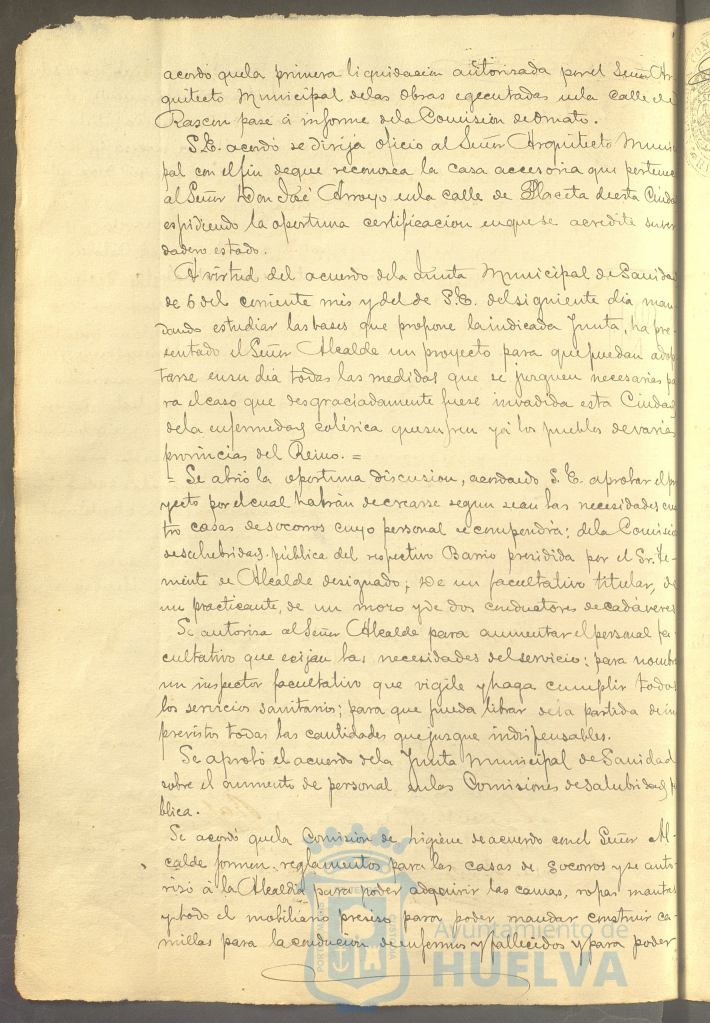 acordó quela primera liquidacion autorizada porel Señor Ar
quitecto Municipal delas Obras egecutadas enla calle del
Rascon pase á informe dela Comision de Ornato.
S.E. acordó se dirija oficio al Señor Arquitecto Munici
pal con el fin deque reconozca la casa accesoria que pertenece
al Señor Don José Arroyo enla calle de Placeta deesta Ciudad
espidiendo la oportuna certificacion enque se acredite su ver
dadero estado.
A virtud del acuerdo dela Junta Municipal de Sanidad
de 6 del corriente mes y del de S.E. del siguiente dia, man
dando estudiar las bases que propone la indicada Junta, ha pre-
sentado el Señor Alcalde un proyecto para que puedan adop
tarse en su dia todas las medidas que se juzguen necesarias pa
ra el caso que desgraciadamente fuese invadida esta Ciudad
dela enfermedad colérica que sufren ya los pueblos de varias
provincias del Reino. =
= Se abrió la oportuna discusion, acordando S.E. aprobar el pro
yecto por el cual habrán de crearse segun sean las necesidades cua
tro casas de socorros cuyo personal se compondrá: dela Comision
de salubridad pública del respectivo Barrio presidida por el Sr. Te-
niente de Alcalde designado; De un facultativo titular, de
un practicante, de un mozo y de dos conductores de cadáveres
Se autoriza al Señor Alcalde para aumentar el personal fa-
cultativo que exijan las necesidades del servicio; para nombrar
un inspector facultativo que vigile y haga cumplir todos
los servicios sanitarios; para que pueda librar dela partida de im
previstos todas las cantidades que juzgue indispensables.
Se aprobó el acuerdo dela Junta Municipal de Sanidad
sobre el aumento de personal enlas Comisiones de salubridad pú
blica.
Se acordó quela Comision de higiene de acuerdo con el Señor Al-
calde formen reglamentos para las casas de socorros y se auto-
rizó á la Alcaldía para poder adquirir las camas, ropas mantas
y todo el mobiliario preciso para poder mandar construir ca-
millas para la conducion de enfermos y fallecidos y para poder
Ayuntamiento de
HUELVA